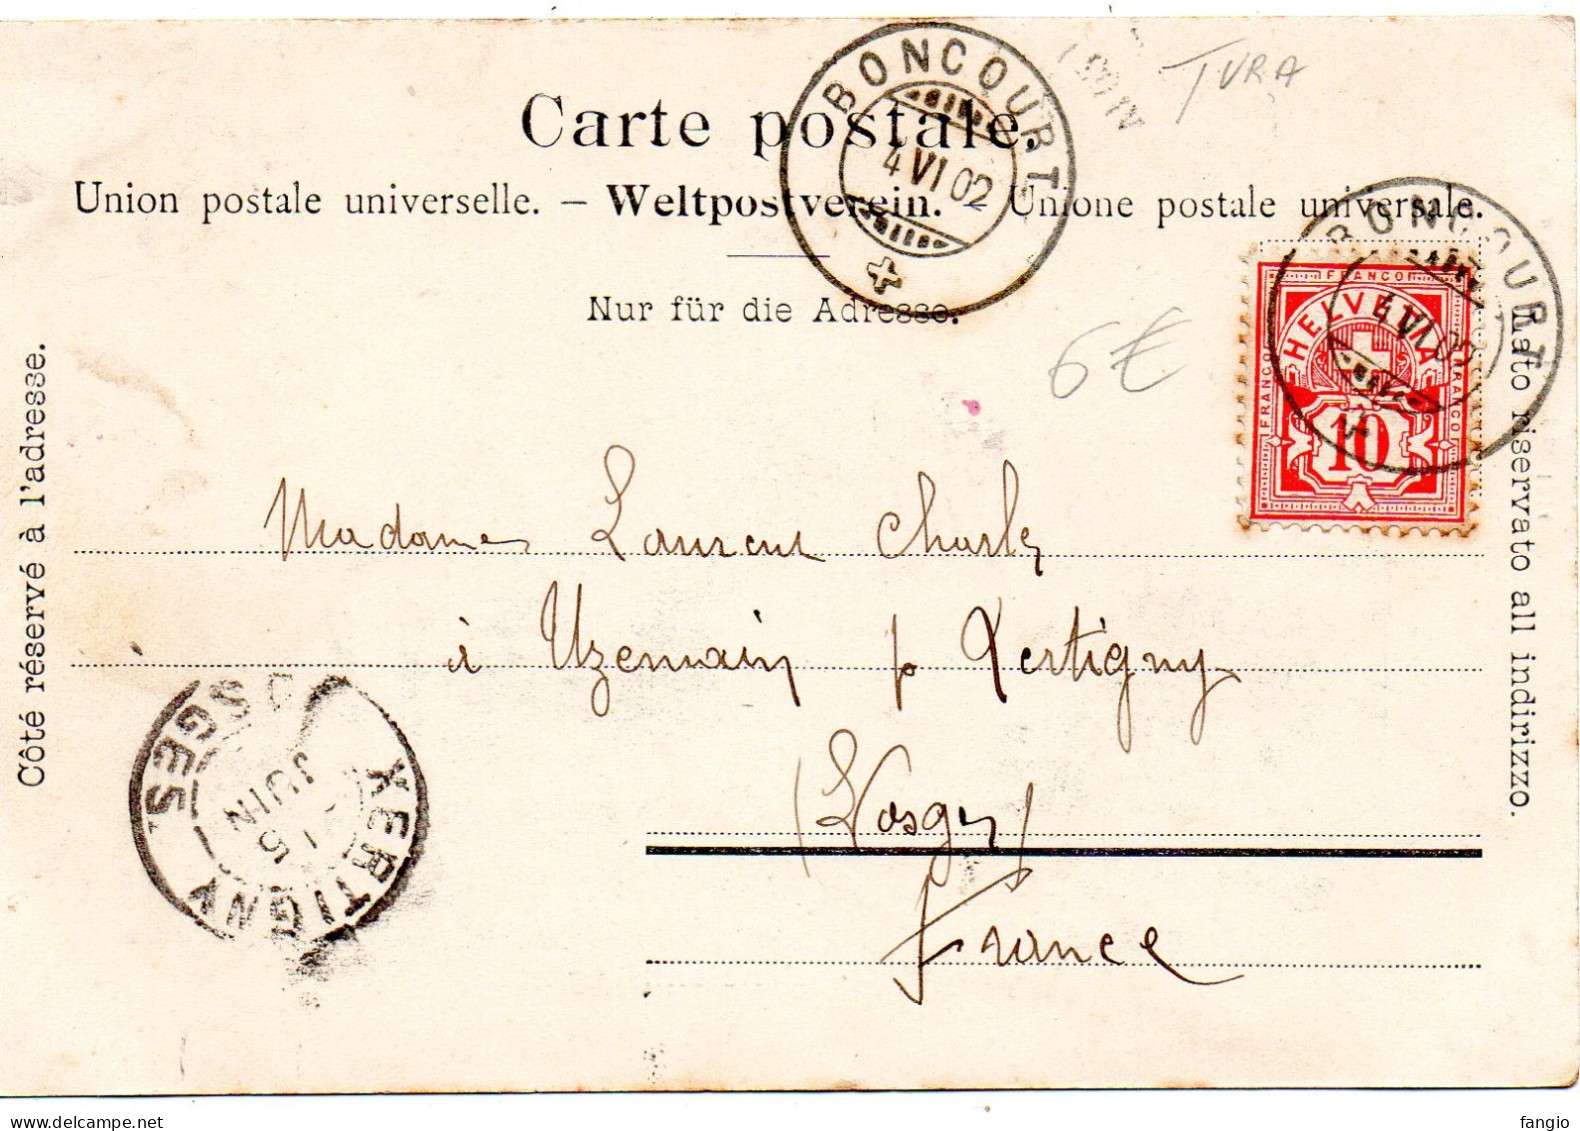 BONCOURT
4 VI 02
JURA
Carte postale.
Union postale universelle. – Weltpostverein. Unione postale universale.
Nur für die Adresse.
BONCOURT
4 VI 02
FRANCO
HELVETIA
FRANCO
FRANCO
10
6€
Côté réservé à l'adresse.
Lato riservato all indirizzo.
Madame Laurent Charles
à Uzemain p Xertigny
(Vosges)
France
XERTIGNY
VOSGES
5
JUIN
www.delcampe.net
fangio